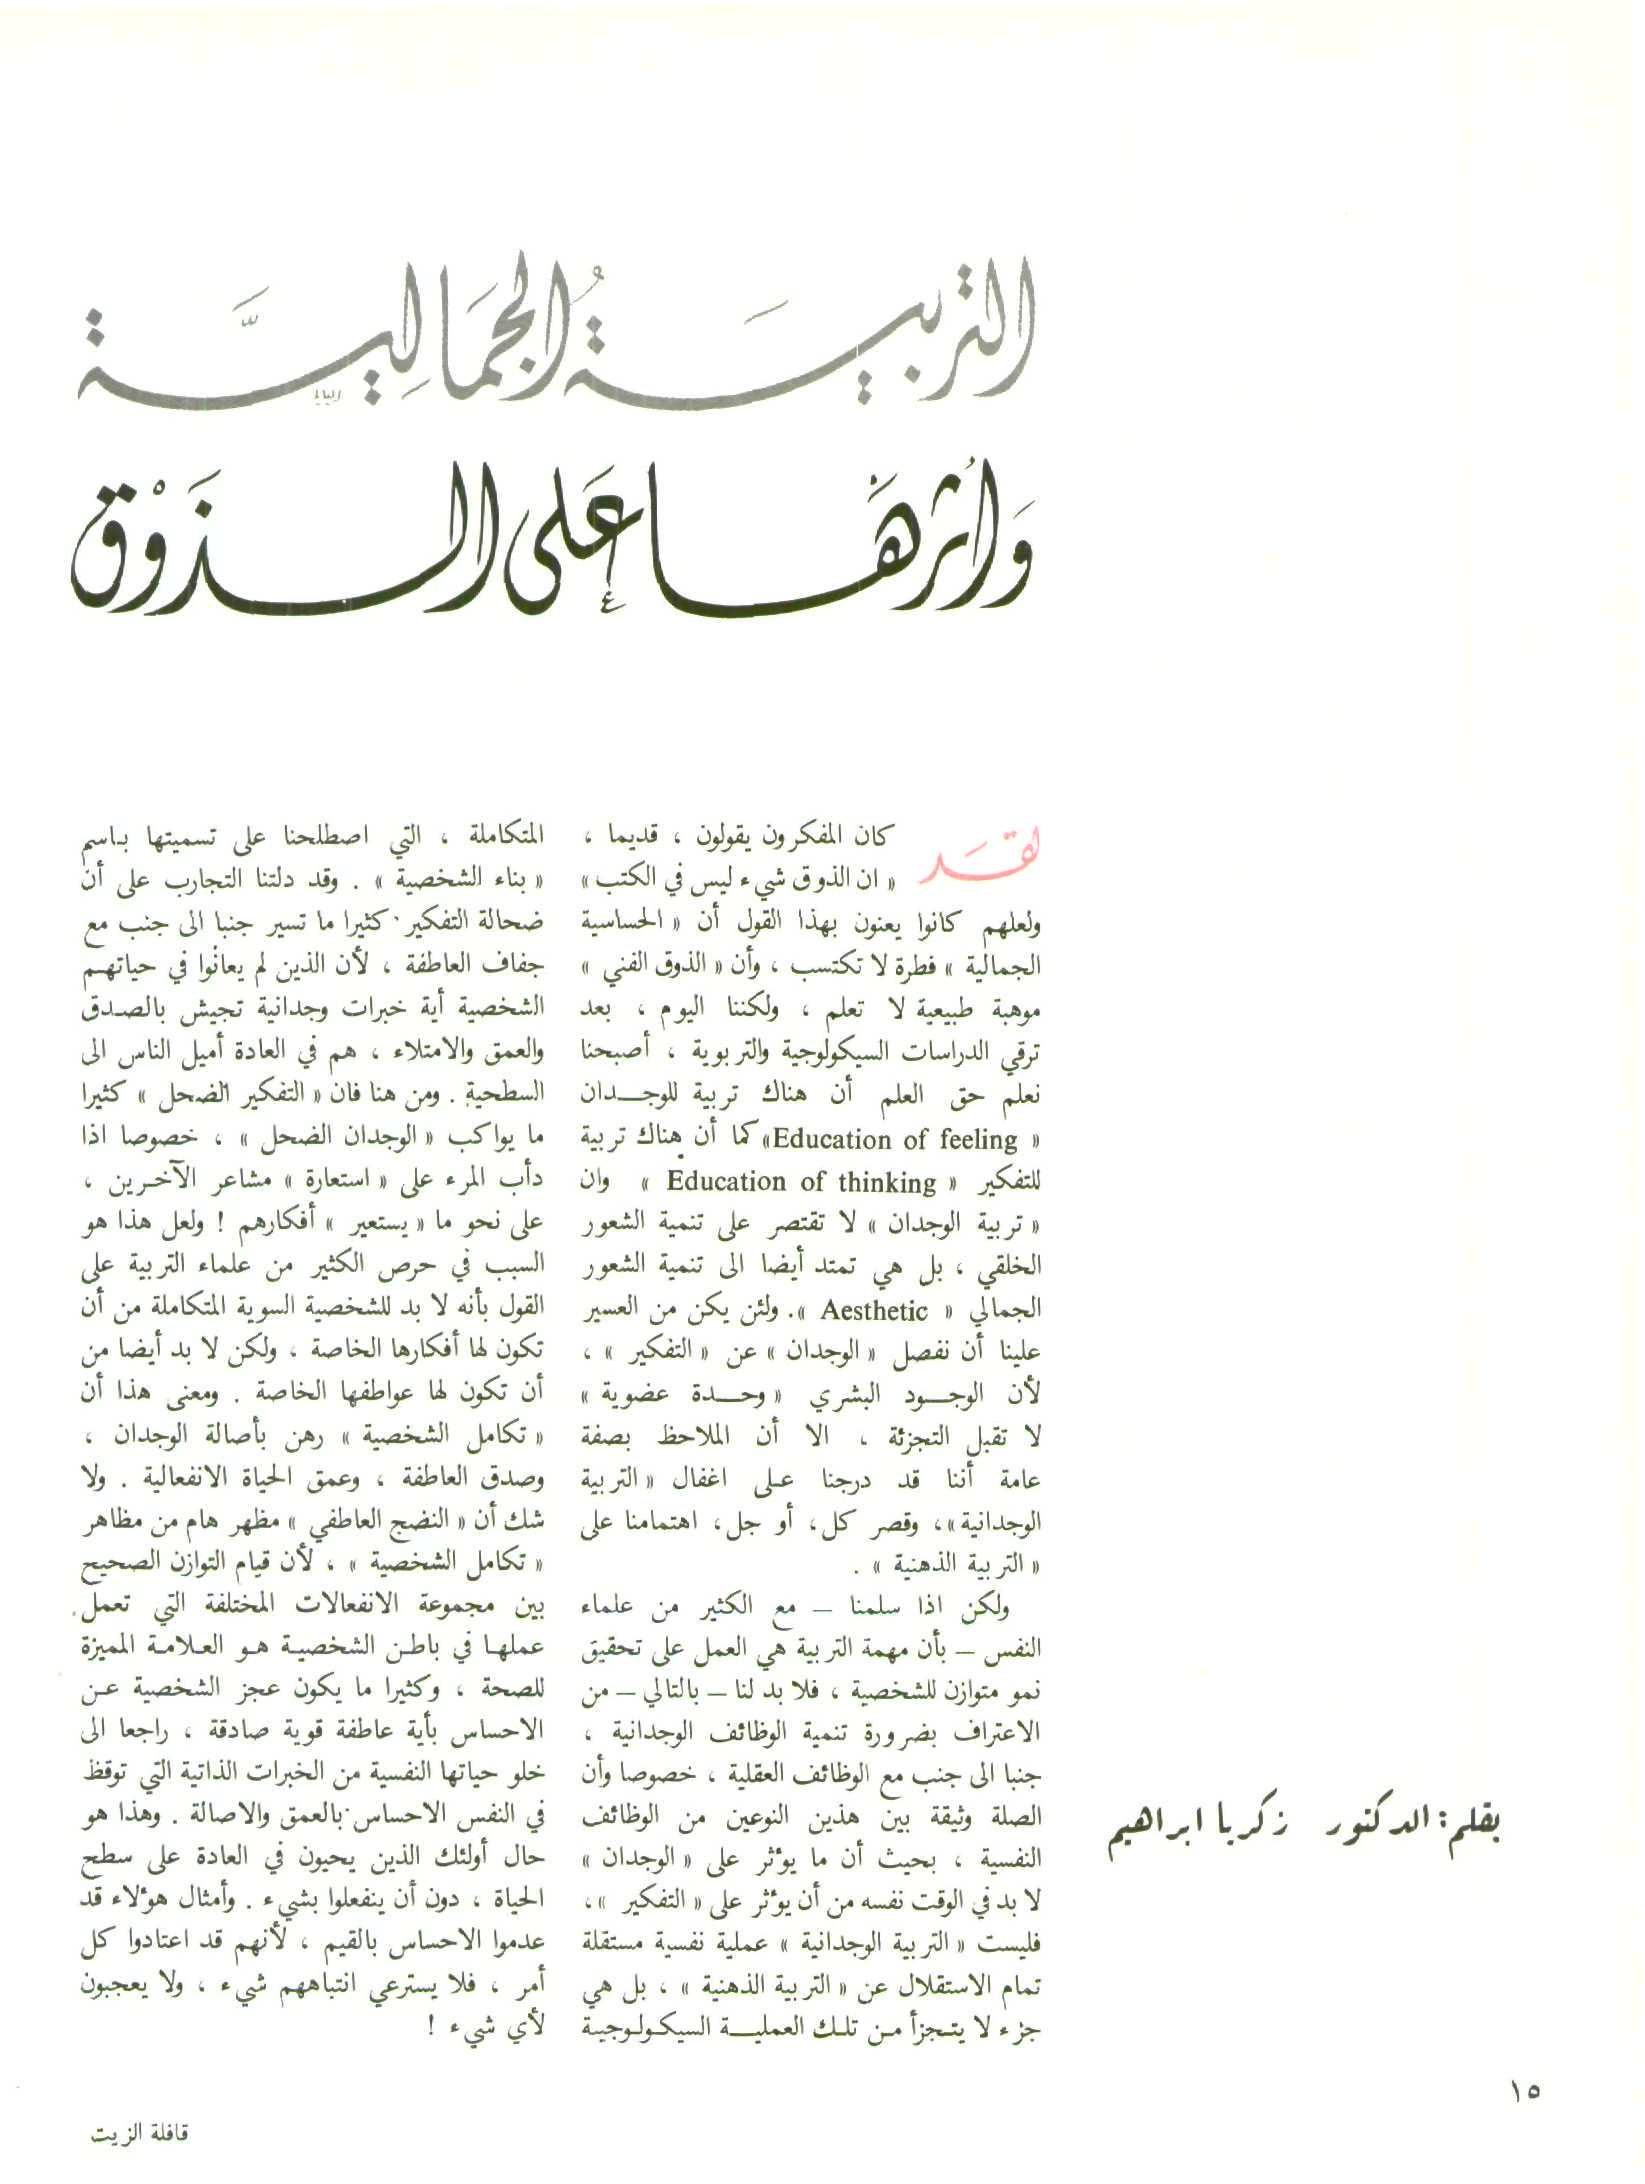 التربيــة الجماليــة
وأثرهــا على الــذوق
لقد كان المفكرون يقولون ، قديما ،
« ان الذوق شيء ليس في الكتب »
ولعلهم كانوا يعنون بهذا القول أن « الحساسية
الجمالية » فطرة لا تكتسب ، وأن « الذوق الفني »
موهبة طبيعية لا تعلم ، ولكننا اليوم ، بعد
ترقي الدراسات السيكولوجية والتربوية ، أصبحنا
نعلم حق العلم أن هناك تربية للوجــدان
« Education of feeling » كما أن هناك تربية
للتفكير « Education of thinking » وان
« تربية الوجدان » لا تقتصر على تنمية الشعور
الخلقي ، بل هي تمتد أيضا الى تنمية الشعور
الجمالي « Aesthetic ». ولئن يكن من العسير
علينا أن نفصل « الوجدان » عن « التفكير » ،
لأن الوجـود البشري « وحــدة عضوية »
لا تقبل التجزئة ، الا أن الملاحظ بصفة
عامة أننا قد درجنا على اغفال « التربية
الوجدانية »، وقصر كل، أو جل، اهتمامنا على
« التربية الذهنية » .
ولكن اذا سلمنا – مع الكثير من علماء
النفس – بأن مهمة التربية هي العمل على تحقيق
نمو متوازن للشخصية ، فلا بد لنا – بالتالي – من
الاعتراف بضرورة تنمية الوظائف الوجدانية ،
جنبا الى جنب مع الوظائف العقلية ، خصوصا وأن
الصلة وثيقة بين هذين النوعين من الوظائف
النفسية ، بحيث أن ما يؤثر على « الوجدان »
لا بد في الوقت نفسه من أن يؤثر على « التفكير »،
فليست « التربية الوجدانية » عملية نفسية مستقلة
تمام الاستقلال عن « التربية الذهنية » ، بل هي
جزء لا يتجزأ من تلك العمليــة السيكولوجية
المتكاملة ، التي اصطلحنا على تسميتها باسم
« بناء الشخصية » . وقد دلتنا التجارب على أن
ضحالة التفكير كثيرا ما تسير جنبا الى جنب مع
جفاف العاطفة ، لأن الذين لم يعانوا في حياتهم
الشخصية أية خبرات وجدانية تجيش بالصدق
والعمق والامتلاء ، هم في العادة أميل الناس الى
السطحية . ومن هنا فان « التفكير الضحل » كثيرا
ما يواكب « الوجدان الضحل » ، خصوصا اذا
دأب المرء على « استعارة » مشاعر الآخرين ،
على نحو ما « يستعير » أفكارهم ! ولعل هذا هو
السبب في حرص الكثير من علماء التربية على
القول بأنه لا بد للشخصية السوية المتكاملة من أن
تكون لها أفكارها الخاصة ، ولكن لا بد أيضا من
أن تكون لها عواطفها الخاصة . ومعنى هذا أن
« تكامل الشخصية » رهن بأصالة الوجدان ،
وصدق العاطفة ، وعمق الحياة الانفعالية . ولا
شك أن « النضج العاطفي » مظهر هام من مظاهر
« تكامل الشخصية » ، لأن قيام التوازن الصحيح
بين مجموعة الانفعالات المختلفة التي تعمل
عملها في باطن الشخصية هو العلامة المميزة
للصحة ، وكثيرا ما يكون عجز الشخصية عن
الاحساس بأية عاطفة قوية صادقة ، راجعا الى
خلو حياتها النفسية من الخبرات الذاتية التي توقظ
في النفس الاحساس بالعمق والاصالة . وهذا هو
حال أولئك الذين يحيون في العادة على سطح
الحياة ، دون أن ينفعلوا بشيء . وأمثال هؤلاء قد
عدموا الاحساس بالقيم ، لأنهم قد اعتادوا كل
أمر ، فلا يسترعي انتباههم شيء ، ولا يعجبون
لأي شيء !
بقلم: الدكتور زكريا ابراهيم
١٥
قافلة الزيت